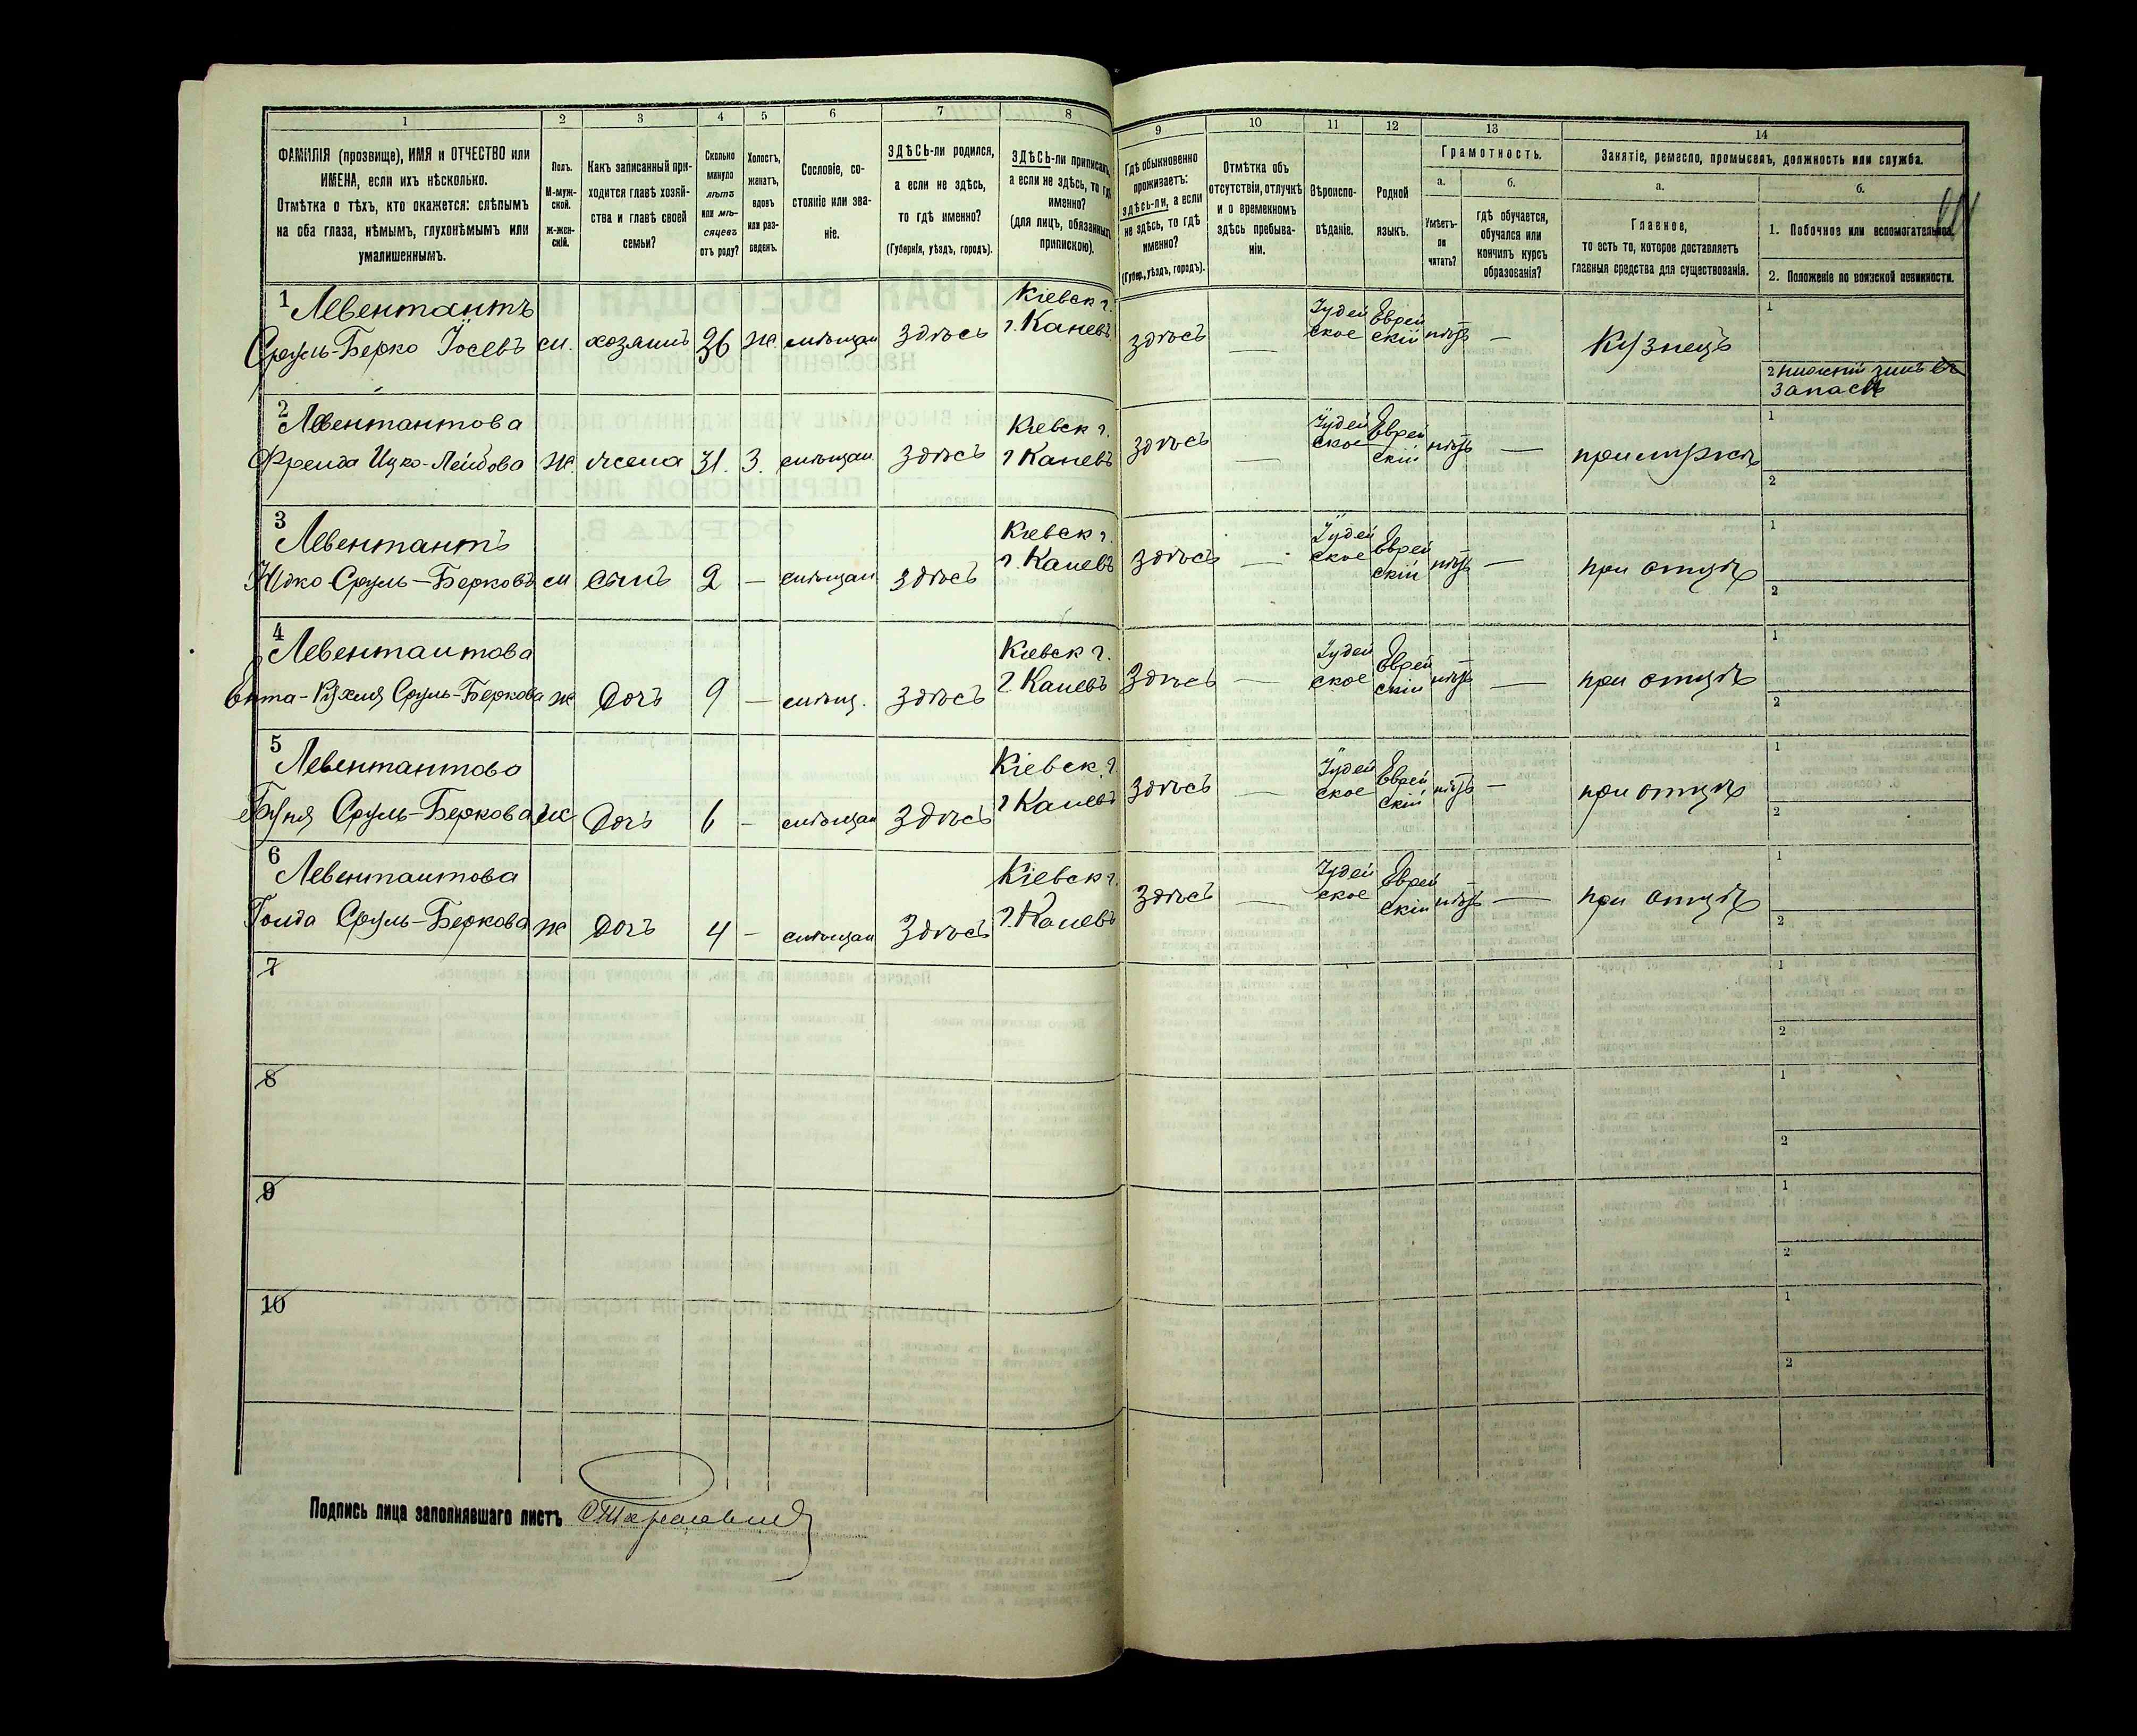 1 2 3 4 5 6 7 8 9 10 11 12 13 14
ФАМИЛІЯ (прозвище), ИМЯ и ОТЧЕСТВО или
ИМЕНА, если ихъ нѣсколько.
Отмѣтка о тѣхъ, кто окажется: слѣпымъ
на оба глаза, нѣмымъ, глухонѣмымъ или
умалишеннымъ.
Полъ.
М-муж-
ской.
ж-жен-
скій.
Какъ записанный при-
ходится главѣ хозяй-
ства и главѣ своей
семьи?
Сколько
минуло
лѣтъ
или мѣ-
сяцевъ
отъ роду?
Холостъ,
женатъ,
вдовъ
или раз-
веденъ.
Сословіе, со-
стояніе или зва-
ніе.
ЗДѢСЬ-ли родился,
а если не здѣсь,
то гдѣ именно?
(Губернія, уѣздъ, городъ).
ЗДѢСЬ-ли приписанъ,
а если не здѣсь, то гдѣ
именно?
(для лицъ, обязанныхъ
припискою).
Гдѣ обыкновенно
проживаетъ:
здѣсь-ли, а если
не здѣсь, то гдѣ
именно?
(Губер., уѣздъ, городъ).
Отмѣтка объ
отсутствіи, отлучкѣ
и о временномъ
здѣсь пребыва-
ніи.
Вѣроиспо-
вѣданіе.
Родной
языкъ.
Грамотность.
а.
Умѣетъ-
ли
читать?
б.
гдѣ обучается,
обучался или
кончилъ курсъ
образованія?
Занятіе, ремесло, промыселъ, должность или служба.
а.
Главное,
то есть то, которое доставляетъ
главныя средства для существованія.
б.
1. Побочное или вспомогательное.
2. Положеніе по воинской повинности.
1 Левентантъ
Сруль-Берко Іосевъ м. хозяинъ 36 ж. мѣщан здѣсь Кіевск г.
г. Каневъ здѣсь — Іудей
ское Еврей
скій нѣтъ — Кузнецъ 1
2 нижній чинъ въ
запасѣ
2 Левентантова
Фрейда Ицко-Лейбова ж. жена 31. з. мѣщан. здѣсь Кіевск г.
г Каневъ здѣсь — Іудей
ское Еврей
скій нѣтъ — при мужѣ 1
2
3 Левентантъ
Юдко Сруль-Берковъ м сынъ 2 — мѣщан здѣсь Кіевск г.
г. Каневъ здѣсь — Іудей
ское Еврей
скій нѣтъ — при отцѣ 1
2
4 Левентантова
Сруль-Беркова ж дочь 9 — мѣщ. здѣсь Кіевск г.
г. Каневъ здѣсь — Іудей
ское Еврей
скій нѣтъ — при отцѣ 1
2
5 Левентантова
Буня Сруль-Беркова ж дочь 6 — мѣщан здѣсь Кіевск. г.
г Каневъ здѣсь — Іудей
ское Еврей
скій нѣтъ — при отцѣ 1
2
6 Левентантова
Голда Сруль-Беркова ж дочь 4 — мѣщан здѣсь Кіевск г.
г. Каневъ здѣсь — Іудей
ское Еврей
скій нѣтъ — при отцѣ 1
2
7 1
2
8 1
2
9 1
2
10 1
2
Подпись лица заполнявшаго листъ